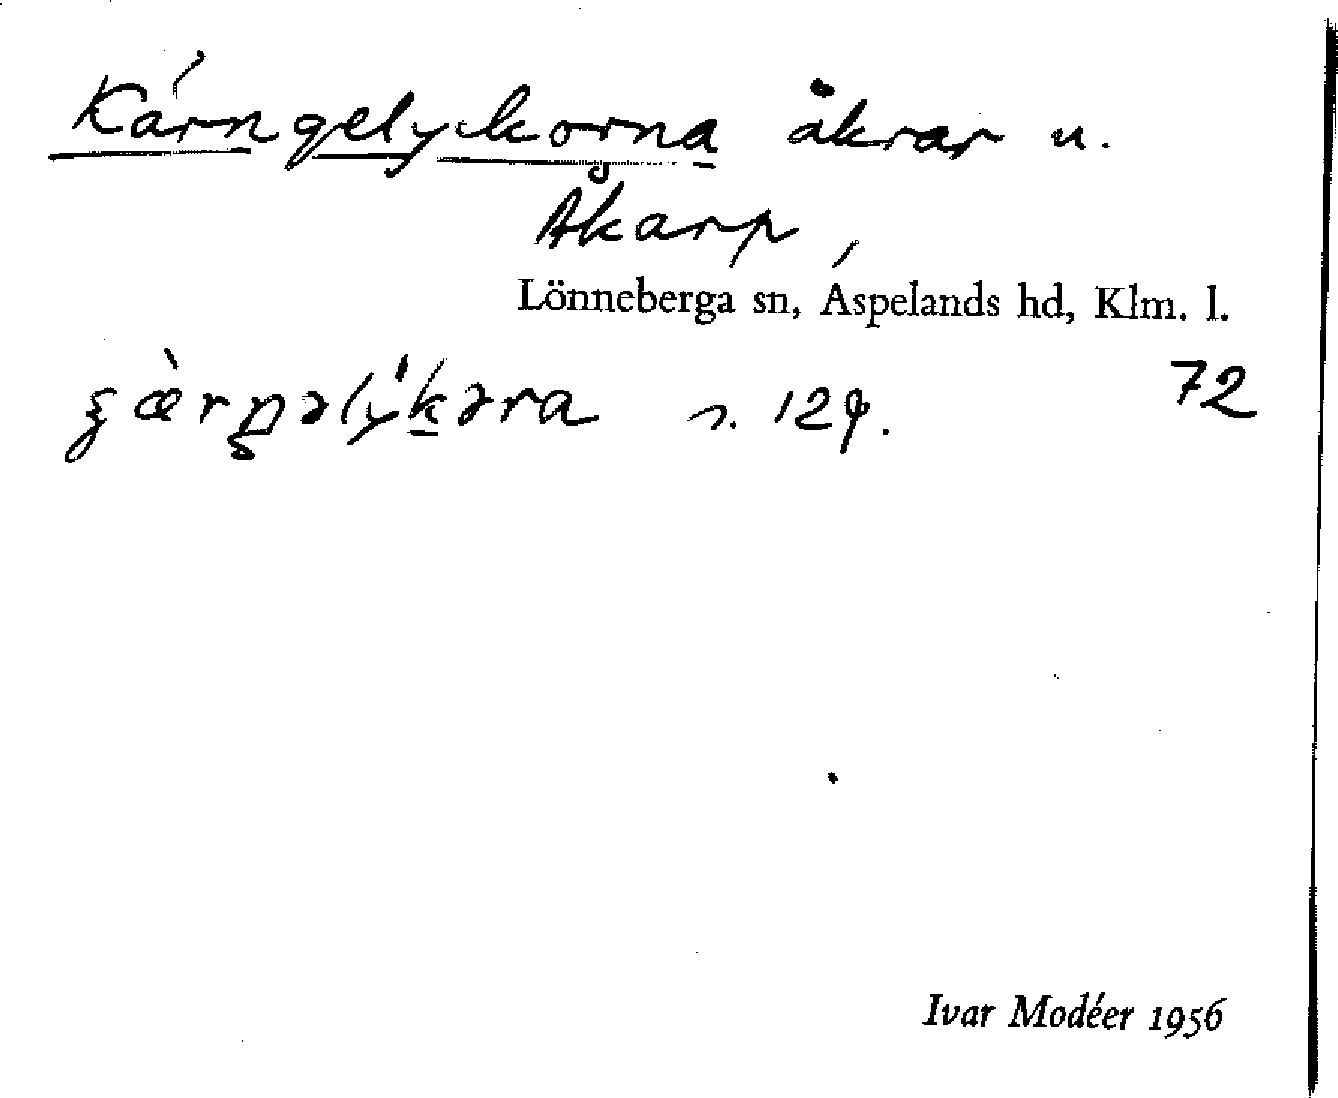 Kärngelyckorna åkrar u.
Åkarp,
Lönneberga sn, Aspelands hd, Klm. l.
s. 129. 72
Ivar Modéer 1956